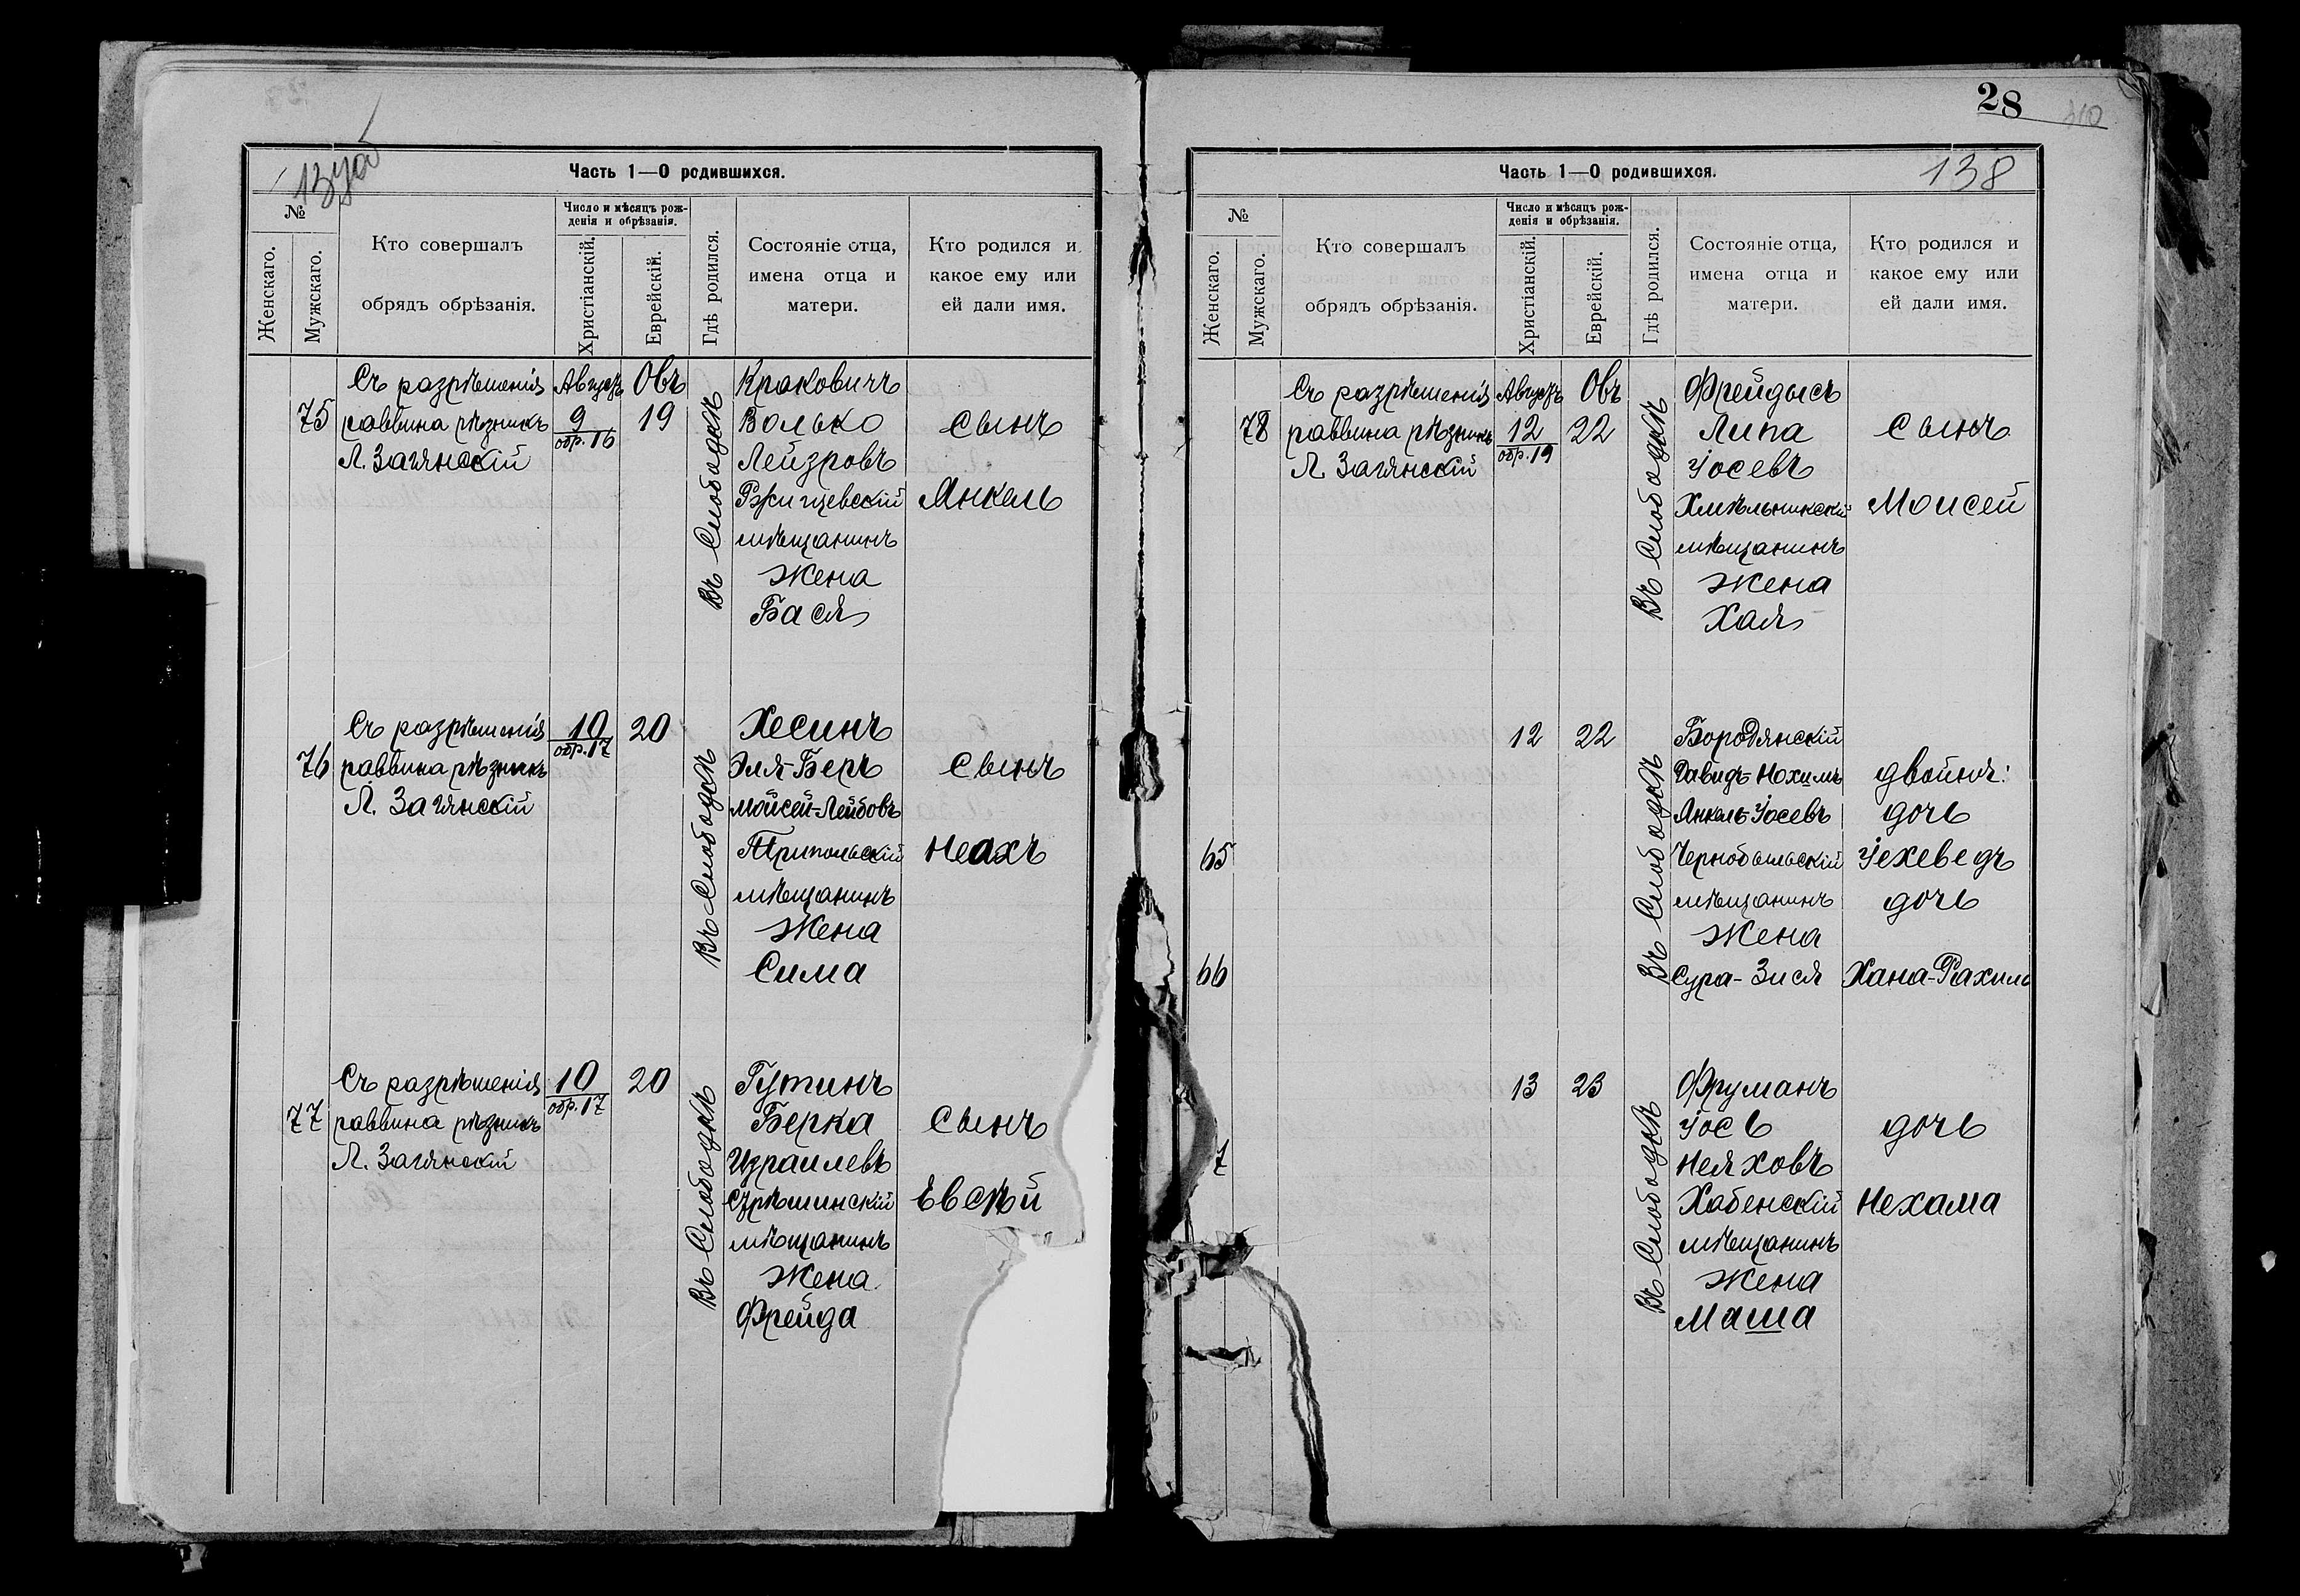 137об
Часть 1—О родившихся.
№
Женскаго.
Мужскаго.
Кто совершалъ
обрядъ обрѣзанія.
Число и мѣсяцъ рож-
денія и обрѣзанія.
Христіанскій.
Еврейскій.
Гдѣ родился.
Состояніе отца,
имена отца и
матери.
Кто родился и
какое ему или
ей дали имя.
75
Съ разрѣшенія
раввина рѣзникъ
Л. Загянскій
Августъ
9
обр. 16
Овъ
19
Въ Слободкѣ
Краковичъ
Волько
Лейзровъ
Ржищевскій
мѣщанинъ
Жена
Бася
сынъ
Янкель
76
Съ разрѣшенія
раввина рѣзникъ
Л. Загянскій
10
обр. 17
20
Въ Слободкѣ
Хесинъ
Эля-Беръ
Мойсей-Лейбовъ
Трипольскій
мѣщанинъ
Жена
Сима
сынъ
Неахъ
77
Съ разрѣшенія
раввина рѣзникъ
Л. Загянскій
10
обр. 17
20
Въ Слободкѣ
Гутинъ
Берка
Израилевъ
мѣщанинъ
Жена
Фрейда
сынъ
Евсѣй
28
138
Часть 1—О родившихся.
№
Женскаго.
Мужскаго.
Кто совершалъ
обрядъ обрѣзанія.
Число и мѣсяцъ рож-
денія и обрѣзанія.
Христіанскій.
Еврейскій.
Гдѣ родился.
Состояніе отца,
имена отца и
матери.
Кто родился и
какое ему или
ей дали имя.
78
Съ разрѣшенія
раввина рѣзникъ
Л. Загянскій
Августъ
12
обр. 19
Овъ
22
Въ Слободкѣ
Фрейдысъ
Липа
Іосевъ
Хмѣльникскій
мѣщанинъ
Жена
Хая
сынъ
Моисей
65
66
12
22
Въ Слободкѣ
Бородянскій
Давидъ-Нохимъ
Янкель-Іосевъ
Чернобыльскій
мѣщанинъ
Жена
Сура-Зися
двойня:
дочь
Іехеведъ
дочь
Хана-Рахиль
7
13
23
Въ Слободкѣ
Фруманъ
Іось
Неяховъ
Хабенскій
мѣщанинъ
Жена
Маша
дочь
Нехама